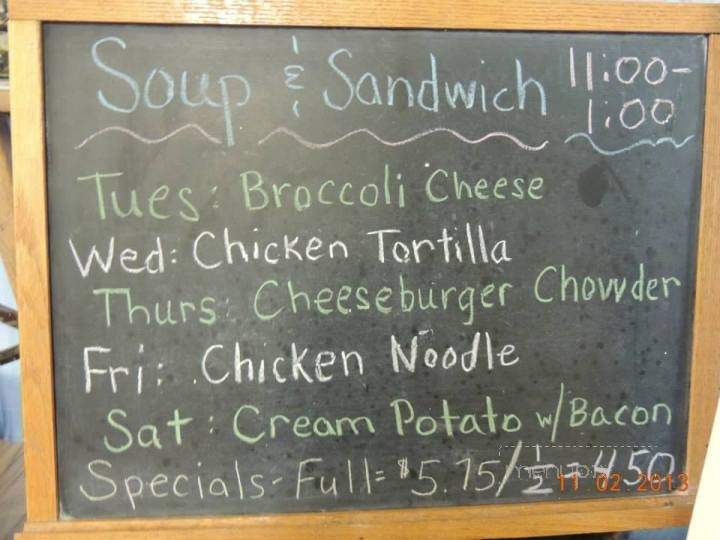 Soup & Sandwich 11:00-1:00
Tues: Broccoli Cheese
Wed: Chicken Tortilla
Thurs: Cheeseburger Chowder
Fri: Chicken Noodle
Sat: Cream Potato w/Bacon
Specials-Full= $5.75/ 1/2 = 4.50
11 02 2013